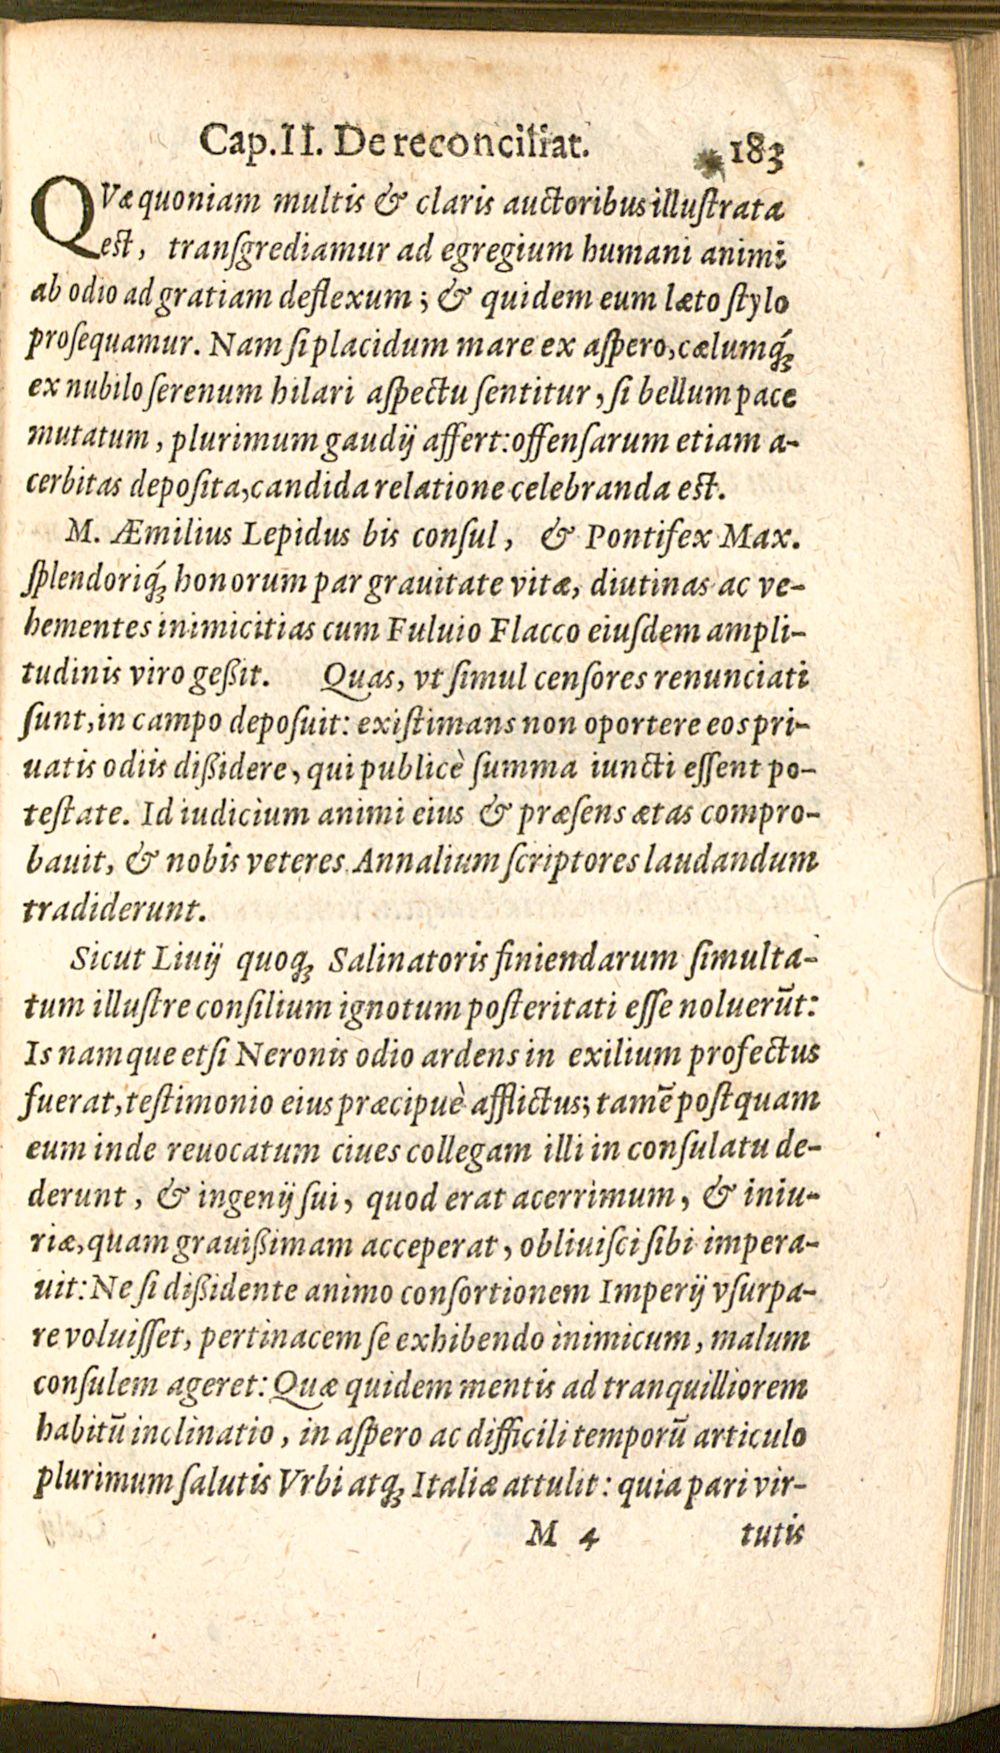 Cap.II. De reconciliat. 183
QVæ quoniam multis & claris auctoribus illuſtrata
eſt, tranſgrediamur ad egregium humani animi
ab odio ad gratiam deflexum; & quidem eum læto ſtylo
proſequamur. Nam ſi placidum mare ex aſpero, cælumq́ꝫ
ex nubilo ſerenum hilari aſpectu ſentitur, ſi bellum pace
mutatum, plurimum gaudij affert: offenſarum etiam a-
cerbitas depoſita, candida relatione celebranda eſt.
M. Æmilius Lepidus bis conſul, & Pontifex Max.
ſplendoriq́ꝫ honorum par grauitate vitæ, diutinas ac ve-
hementes inimicitias cum Fuluio Flacco eiuſdem ampli-
tudinis viro geßit. Quas, vt ſimul cenſores renunciati
ſunt, in campo depoſuit: exiſtimans non oportere eos pri-
uatis odiis dißidere, qui publicè ſumma iuncti eſſent po-
teſtate. Id iudicium animi eius & præſens ætas compro-
bauit, & nobis veteres Annalium ſcriptores laudandum
tradiderunt.
Sicut Liuij quoqꝫ Salinatoris finiendarum ſimulta-
tum illuſtre conſilium ignotum poſteritati eſſe noluerūt:
Is namque etſi Neronis odio ardens in exilium profectus
fuerat, teſtimonio eius præcipuè afflictus; tamē poſtquam
eum inde reuocatum ciues collegam illi in conſulatu de-
derunt, & ingenij ſui, quod erat acerrimum, & iniu-
riæ, quam grauißimam acceperat, obliuiſci ſibi impera-
uit: Ne ſi dißidente animo conſortionem Imperij vſurpa-
re voluiſſet, pertinacem ſe exhibendo inimicum, malum
conſulem ageret: Quæ quidem mentis ad tranquilliorem
habitū inclinatio, in aſpero ac difficili temporū articulo
plurimum ſalutis Vrbi atqꝫ Italiæ attulit: quia pari vir-
M 4 tutis